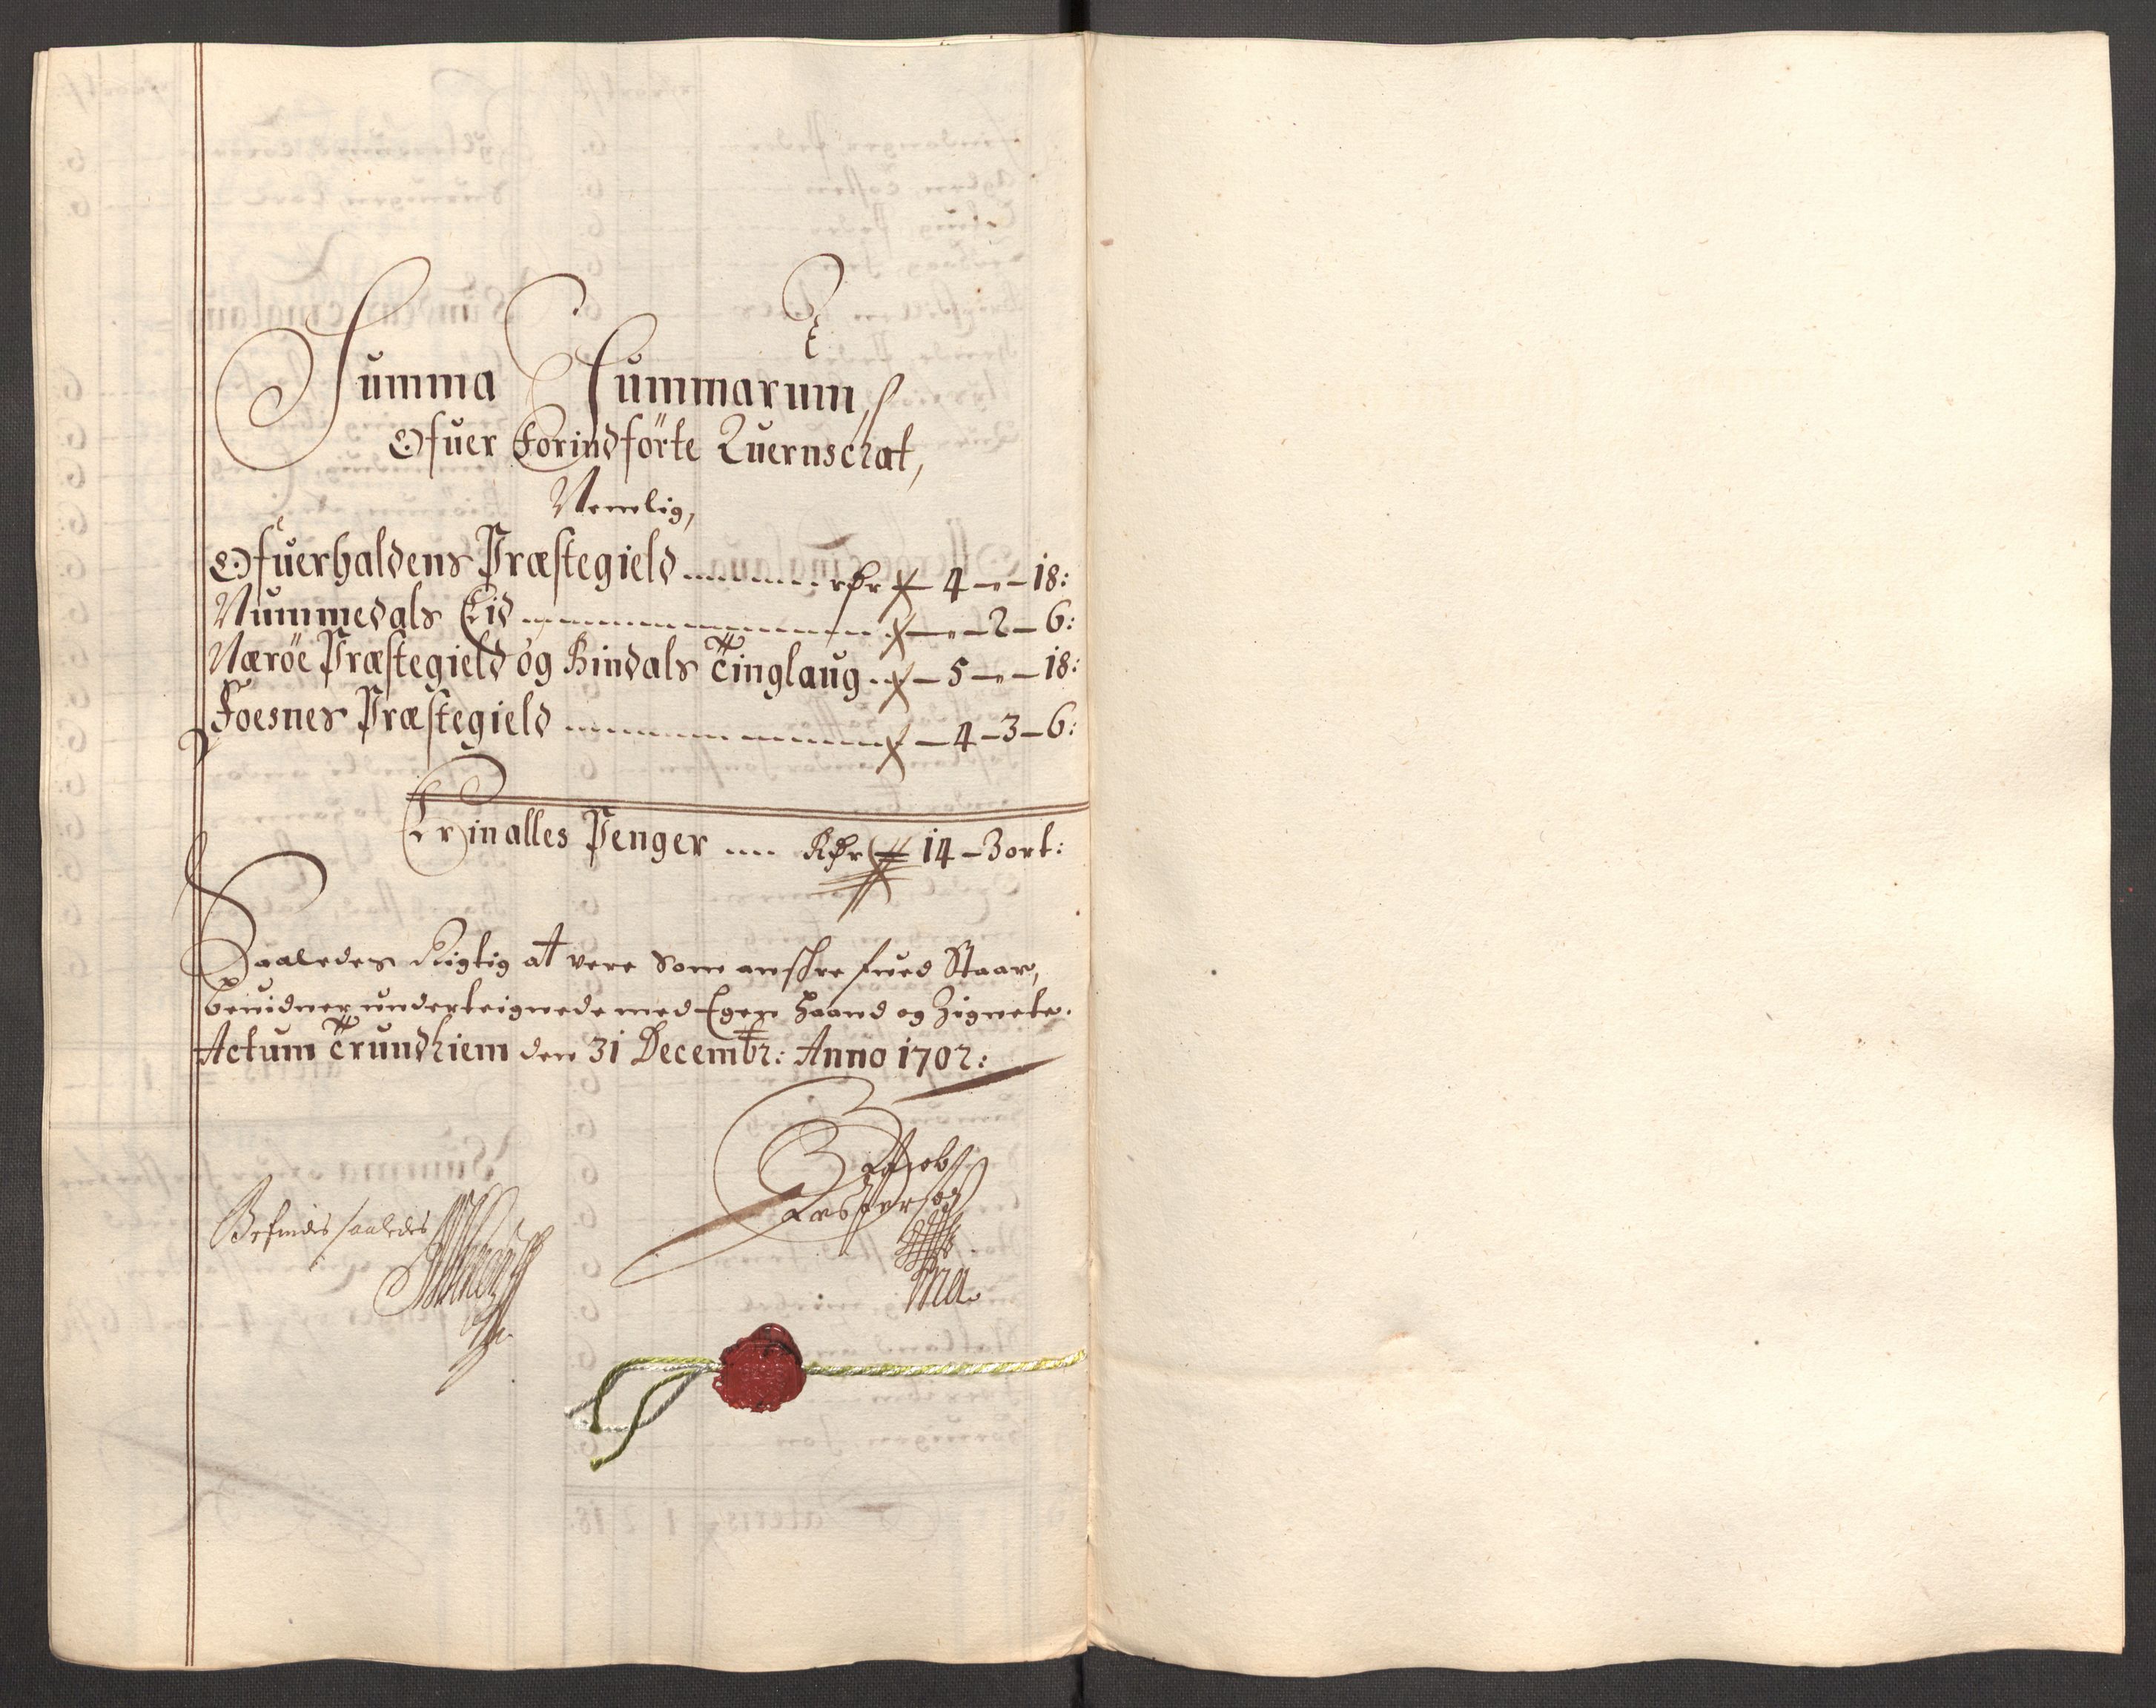 Summa Summarum,
Ofuer Forindförte Quernschat,
Nemlig,
Ofuerhaldens Præstegield ........ rdr 4 – " – 18:
Nummedals Eid ........ – " – 2 – 6:
Næröe Præstegield og Bindals Tinglaug .. – 5 – " – 18:
Foesnes Præstegield ........ – 4 – 3 – 6:
Er in alles Penger .... Rdr 14 – 3 ort:
Saaledes Rigtig at vere som anschrefued Staar,
beuidner underteignede med Egen Haand og Zignete.
Actum Trundhiem den 31 Decembr: Anno 1702:
Befindes saaledes
ma.